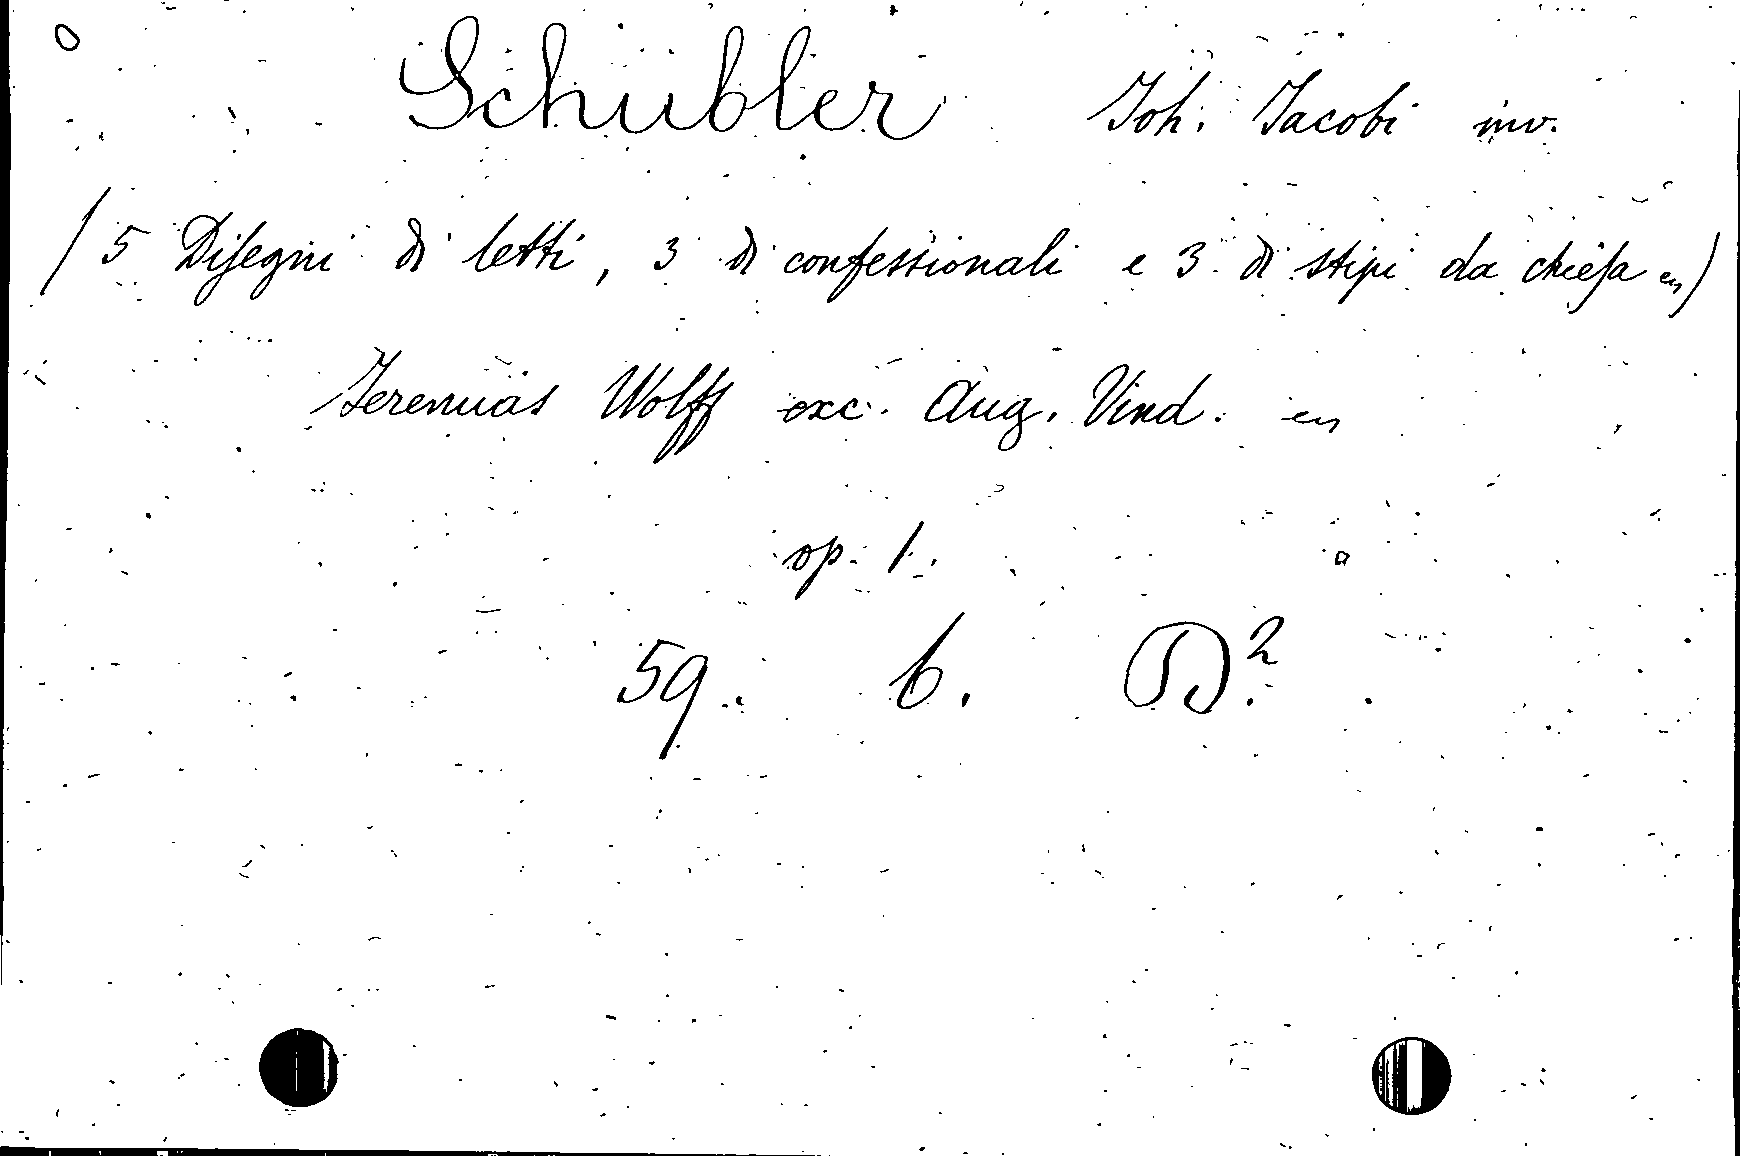 Schübler Joh. Jacobi inv.
(5 Diſegni di letti, 3 di confessionali e 3 di stipi da chieſa
Jeremias Wolff exc. Aug. Vind.
op. 1.
59. b. D².